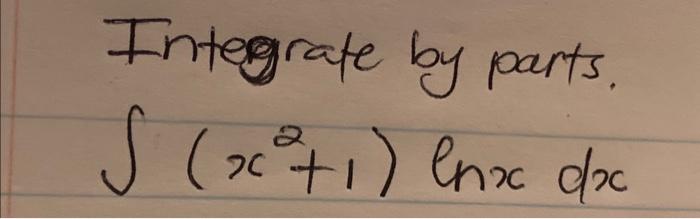 Integrate by parts.
∫ (x²+1) lnx dx